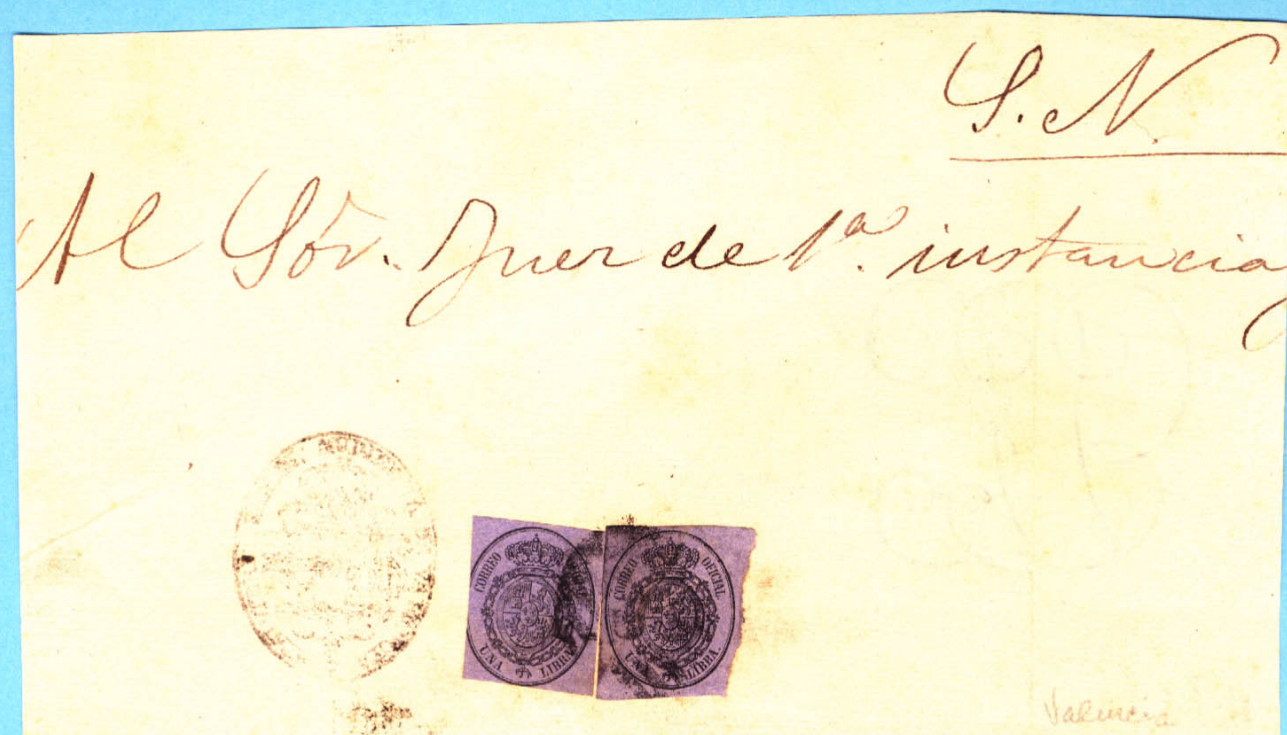 S. N.
Al Sór. Juez de 1ª. instancia
CORREO OFICIAL
UNA LIBRA
CORREO OFICIAL
UNA LIBRA.
Valencia